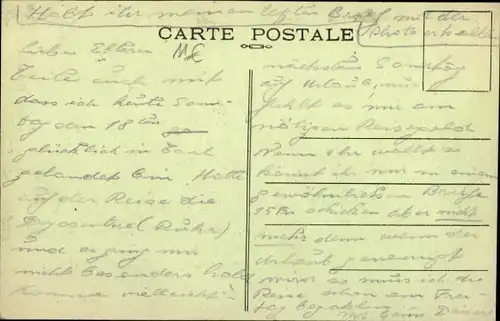 (Habt ihr meinen letzten Brief mit der
Photo erhalten
CARTE POSTALE
Liebe Eltern
Teile euch mit
dass ich heute Sam-
tag den 18ten
glücklich in
gelandet bin Hatte
auf der Reise die
Dysenterie (Ruhr)
und es ging mir
nicht besonders
komme vielleicht
nächsten Samstag
auf Urlaub, nur
fehlt es mir am
nötigen Reisegeld
Wenn ihr wollt so
könnt ihr mir in einem
gewöhnlichen Briefe
15 schicken aber nicht
mehr denn wenn der
Urlaub genemigt
wird so muss ich die
Reise schon am Frei-
tag